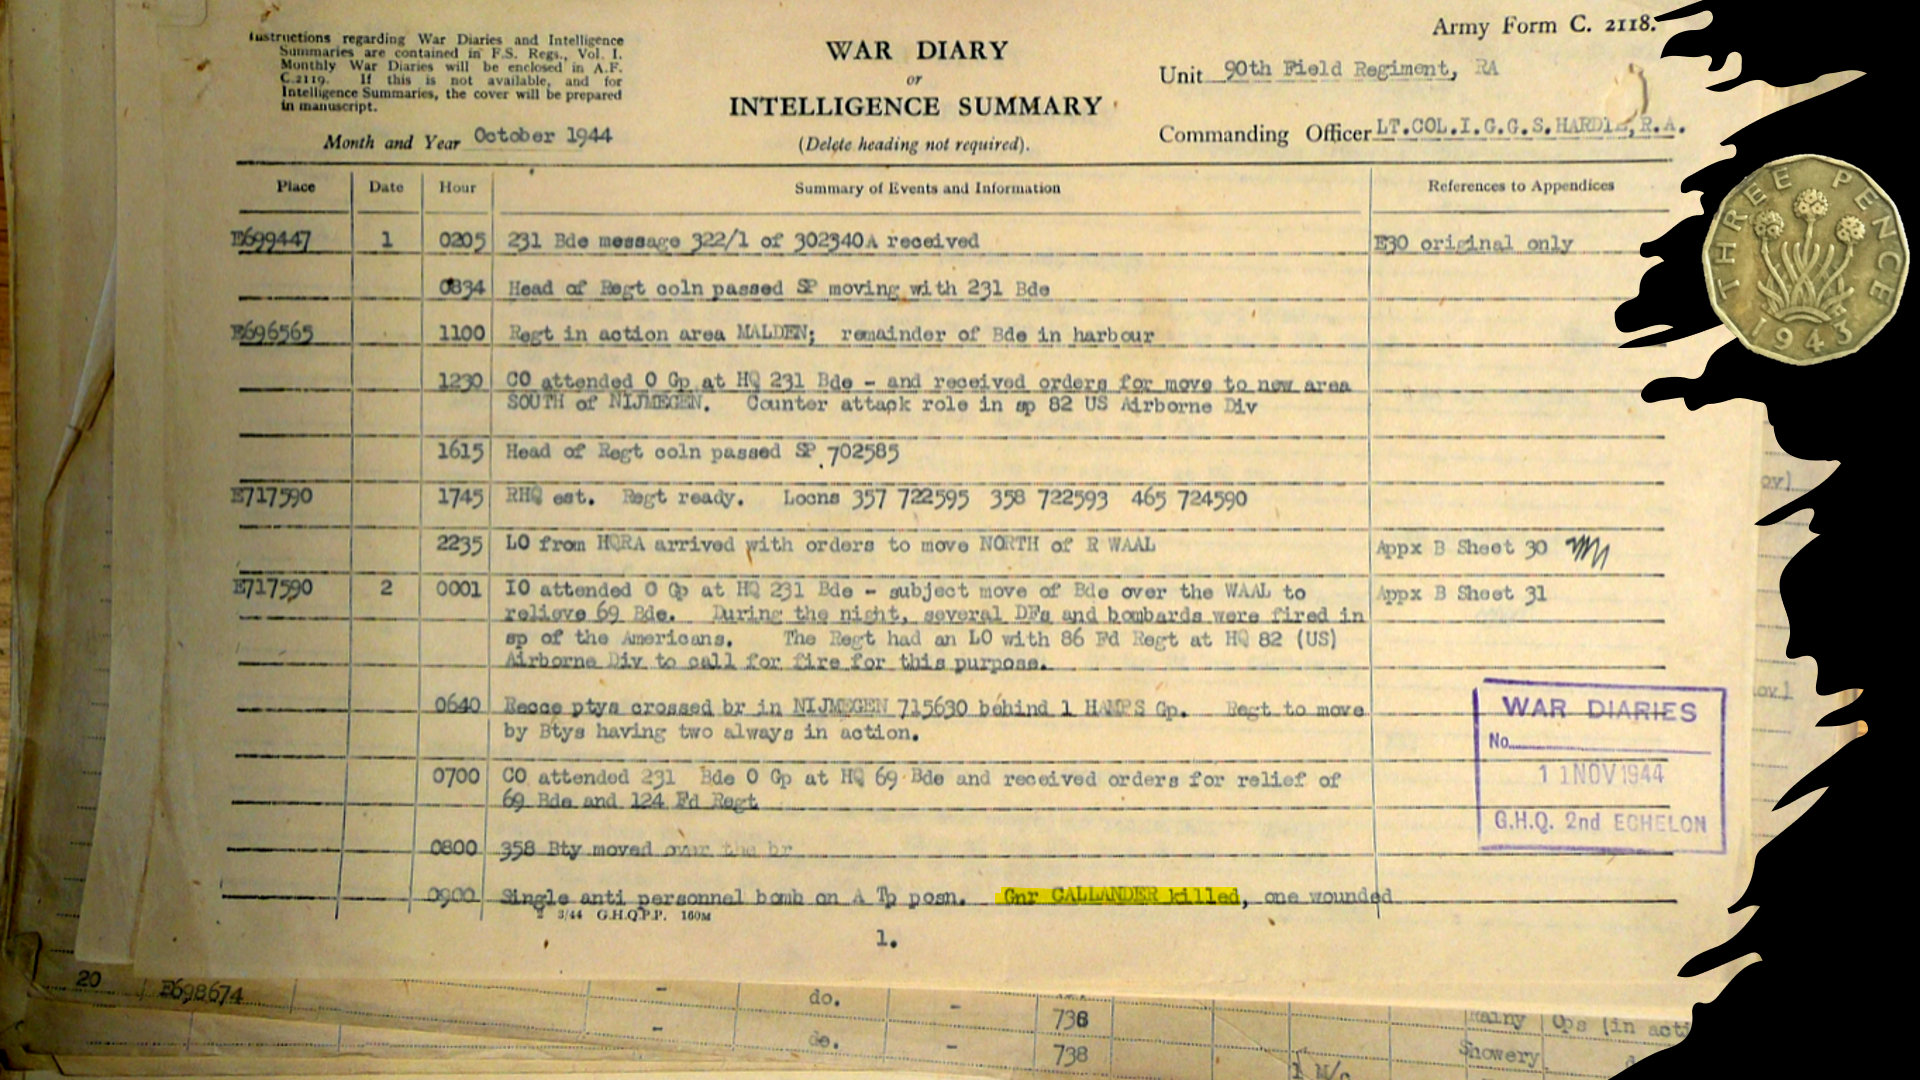 Instructions regarding War Diaries and Intelligence
Summaries are contained in F.S. Regs., Vol. I.
Monthly War Diaries will be enclosed in A.F.
C.2119. If this is not available, and for
Intelligence Summaries, the cover will be prepared
in manuscript.
Month and Year October 1944
WAR DIARY
or
INTELLIGENCE SUMMARY
(Delete heading not required).
Army Form C. 2118.
Unit 90th Field Regiment, RA
Commanding Officer LT.COL.I.G.G.S.HARDIE,R.A.
Place Date Hour Summary of Events and Information References to Appendices
E699447 1 0205 231 Bde message 322/1 of 302340A received E30 original only
0834 Head of Regt coln passed SP moving with 231 Bde
E696565 1100 Regt in action area MALDEN; remainder of Bde in harbour
1230 CO attended O Gp at HQ 231 Bde - and received orders for move to new area
SOUTH of NIJMEGEN. Counter attack role in sp 82 US Airborne Div
1615 Head of Regt coln passed SP 702585
E717590 1745 RHQ est. Regt ready. Locns 357 722595 358 722593 465 724590
2235 LO from HQRA arrived with orders to move NORTH of R WAAL Appx B Sheet 30
E717590 2 0001 IO attended O Gp at HQ 231 Bde - subject move of Bde over the WAAL to Appx B Sheet 31
relieve 69 Bde. During the night, several DFs and bombards were fired in
sp of the Americans. The Regt had an LO with 86 Fd Regt at HQ 82 (US)
Airborne Div to call for fire for this purpose.
0640 Recce ptys crossed br in NIJMEGEN 715630 behind 1 HAMPS Gp. Regt to move
by Btys having two always in action.
0700 CO attended 231 Bde O Gp at HQ 69 Bde and received orders for relief of
69 Bde and 124 Fd Regt
0800 358 Bty moved over the br
0900 Single anti personnel bomb on A Tp posn. Gnr CALLANDER killed, one wounded
3/44 G.H.Q.P.P. 160M
1.
WAR DIARIES
No.
11 NOV 1944
G.H.Q. 2nd ECHELON
THREE PENCE
1943
ov.)
ov.)
20 E698674 - do. -
736 Rainy Ops (in acti
- de. - 738 Showery d
1 M/c